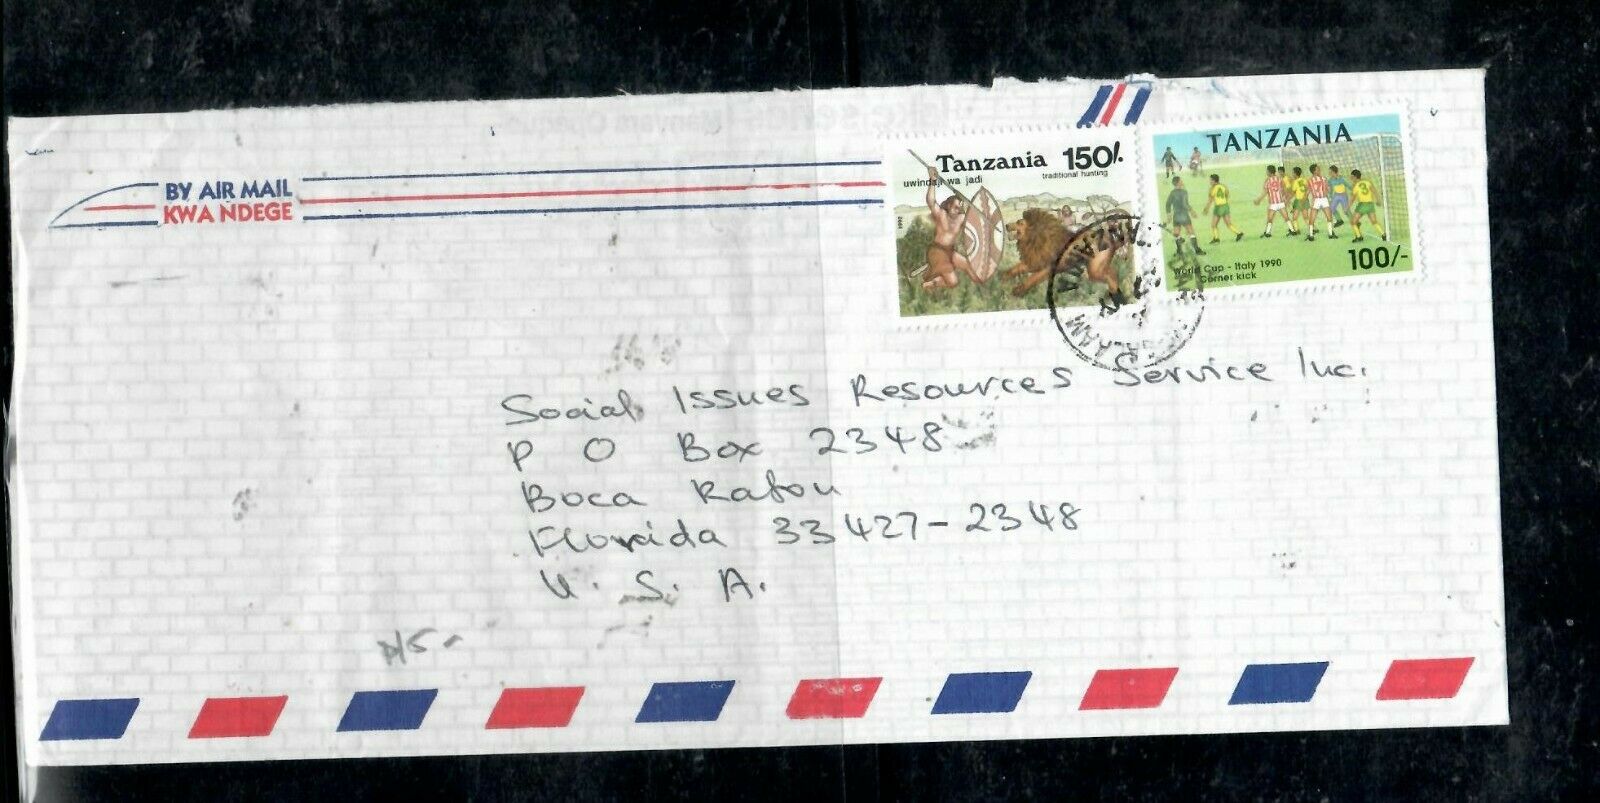 BY AIR MAIL
KWA NDEGE
Tanzania 150/-
uwindaji wa jadi
traditional hunting
1992
TANZANIA
World Cup - Italy 1990
Corner kick
100/-
TANZANIA
SALAAM
Social Issues Resources Service Inc.
P O Box 2348
Boca Raton
Florida 33427-2348
U. S. A.